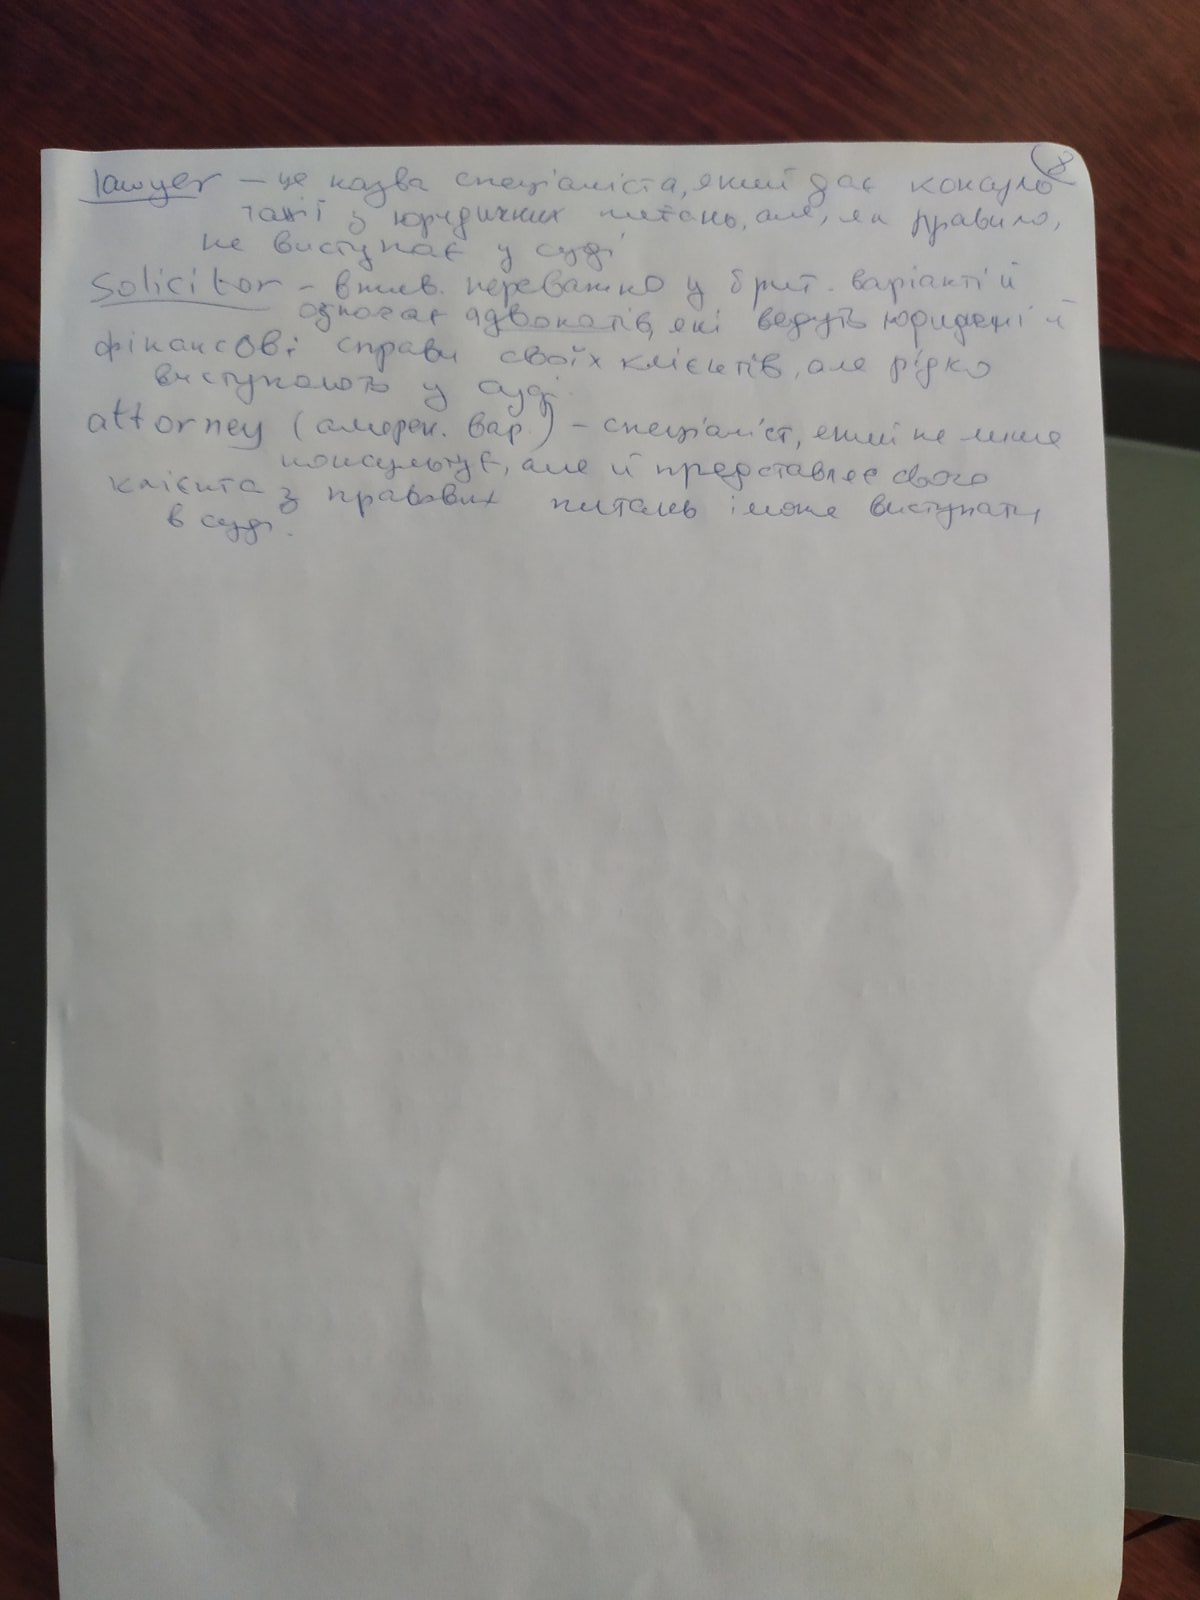 8
lawyer – це назва спеціаліста, який дає консуль
тації з юридичних питань, але, як правило,
не виступає у суді
Solicitor – вжив. переважно у брит. варіанті й
означає адвокатів, які ведуть юридичні й
фінансові справи своїх клієнтів, але рідко
виступають у суді.
attorney (америк. вар.) – спеціаліст, який не лише
консультує, але й представляє свого
клієнта з правових питань і може виступати
в суді.